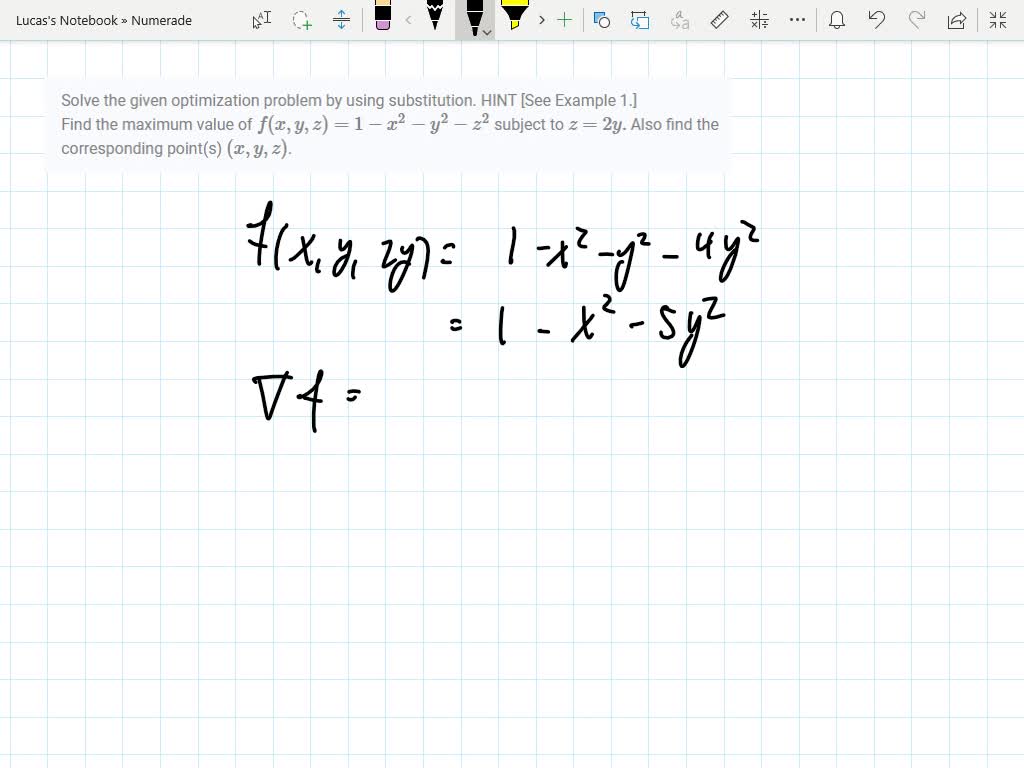 Lucas's Notebook » Numerade
Solve the given optimization problem by using substitution. HINT [See Example 1.]
Find the maximum value of f(x, y, z) = 1 − x² − y² − z² subject to z = 2y. Also find the
corresponding point(s) (x, y, z).
f(x, y, 2y) = 1 - x² - y² - 4y²
= 1 - x² - 5y²
∇f =